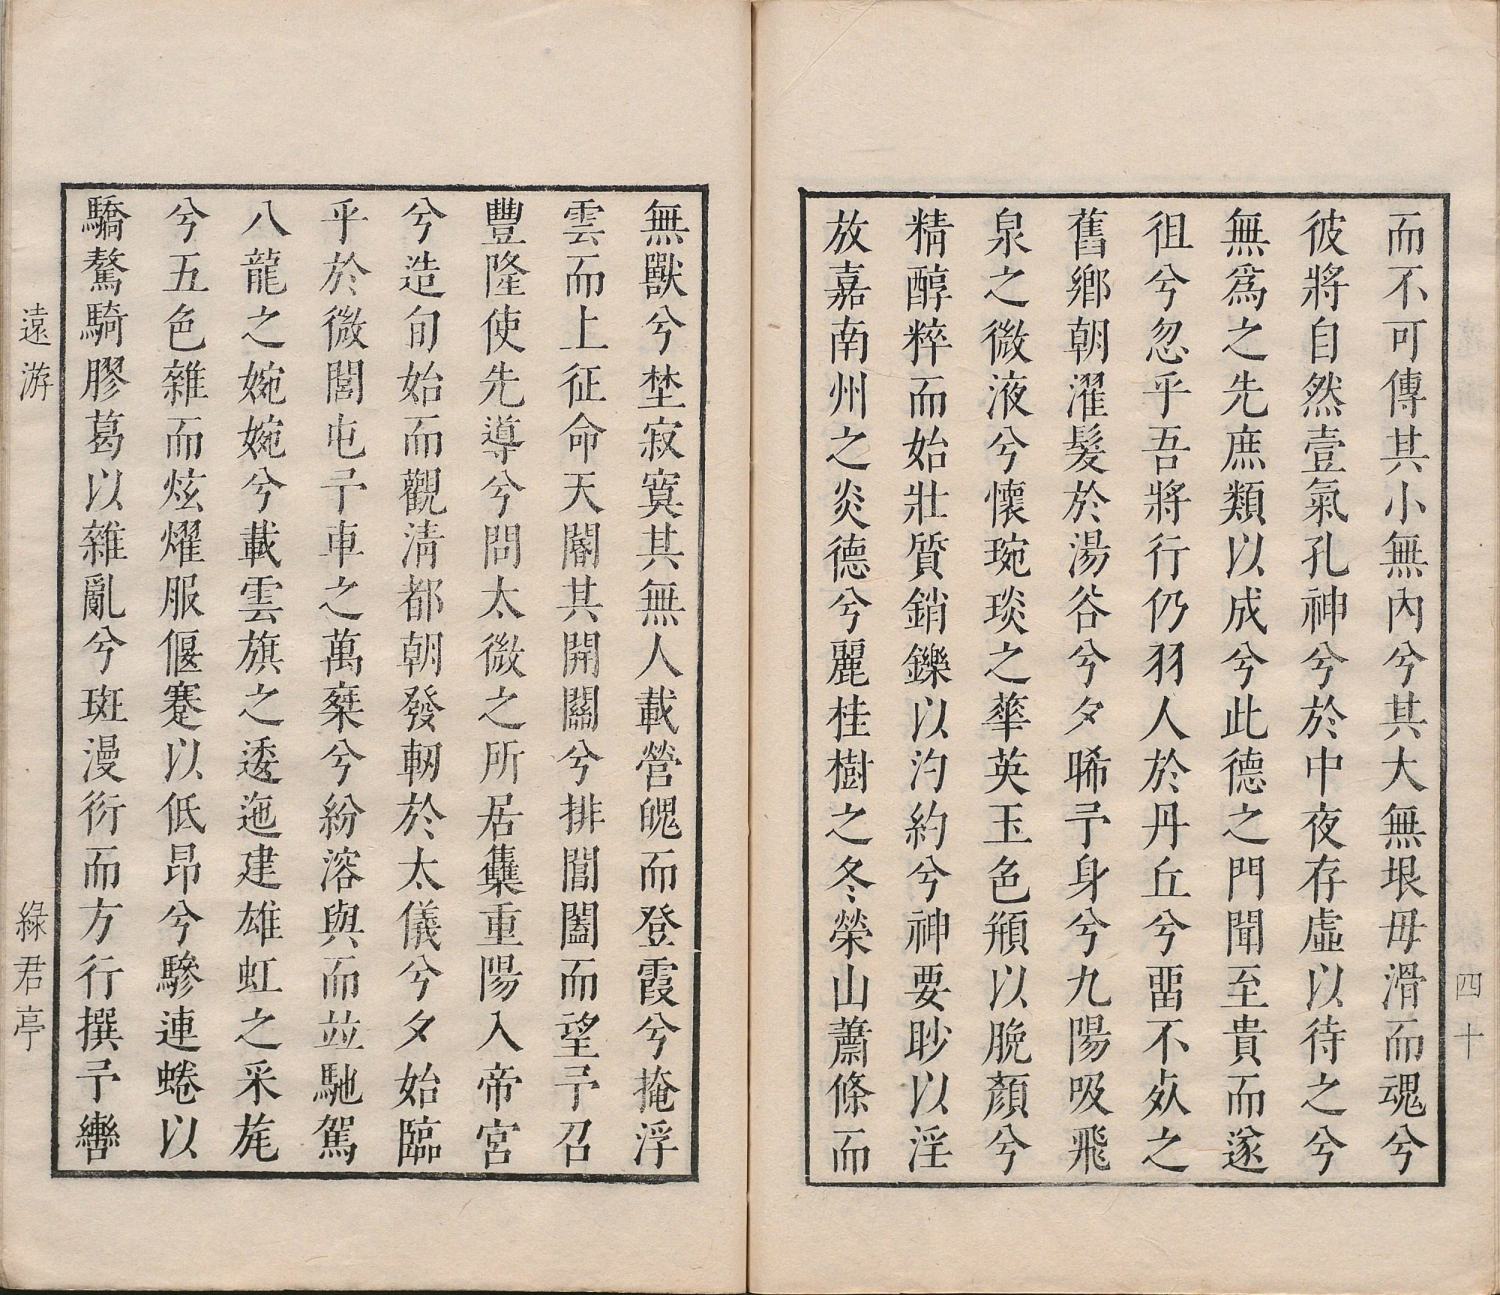 而不可傳其小無內兮其大無垠毋滑而魂兮
彼將自然壹氣孔神兮於中夜存虛以待之兮
無爲之先庶類以成兮此德之門聞至貴而遂
徂兮忽乎吾將行仍羽人於丹丘兮畱不夊之
舊鄉朝濯髮於湯谷兮夕晞予身兮九陽吸飛
泉之微液兮懷琬琰之華英玉色頩以脕顏兮
精醇粹而始壯質銷鑠以汋約兮神要眇以淫
放嘉南州之炎德兮麗桂樹之冬榮山蕭條而
四十
無獸兮埜寂寞其無人載營魄而登霞兮掩浮
雲而上征命天閽其開關兮排閶闔而望予召
豐隆使先導兮問太微之所居集重陽入帝宮
兮造旬始而觀清都朝發軔於太儀兮夕始臨
乎於微閭屯予車之萬椉兮紛溶與而並馳駕
八龍之婉婉兮載雲旗之逶迤建雄虹之采旄
兮五色雜而炫燿服偃蹇以低昂兮驂連蜷以
驕驁騎膠葛以雜亂兮斑漫衍而方行撰予轡
遠游
綠君亭